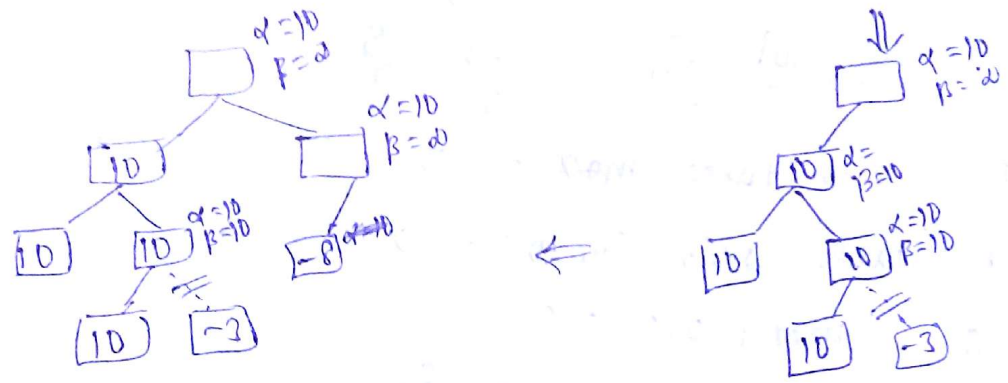 α=10
β=∞
α=10
β=∞
10
10
10
α=10
β=10
-8
10
-3
α=10
β=∞
10
α=
β=10
10
10
α=10
β=10
10
-3